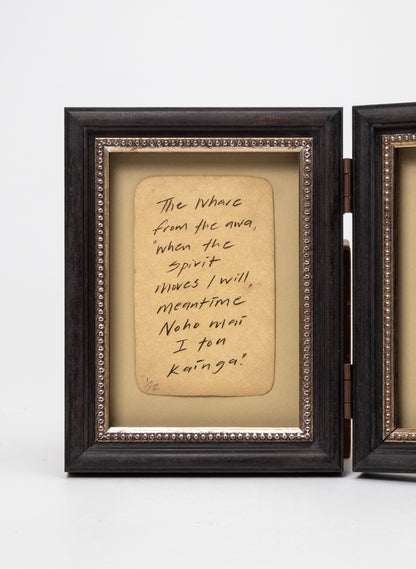 The Whare
from the awa,
"when the
spirit
moves I will,
meantime
Noho mai
I tou
Kāinga."
1/12